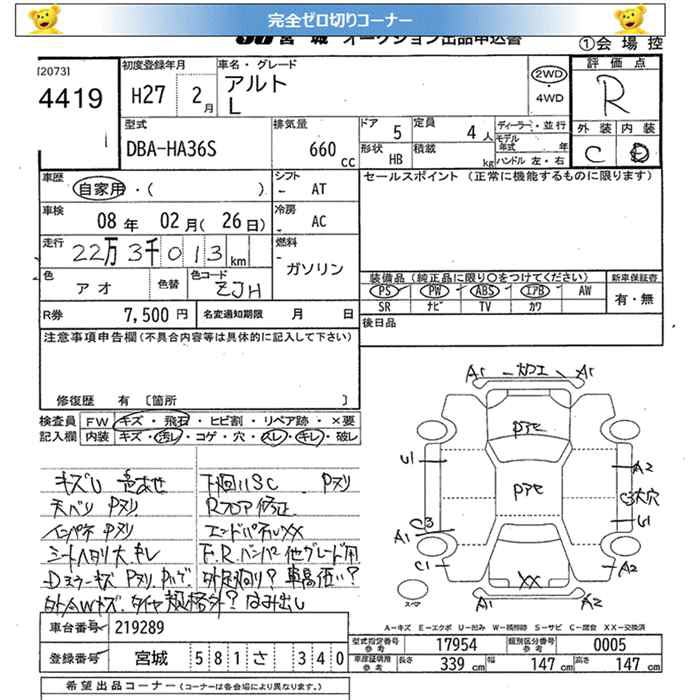 完全ゼロ切りコーナー
宮城 オークション出品申込書
①会場控
[2073]
4419
初度登録年月
H27 2月
車名・グレード
アルト
L
2WD
・
4WD
評価点
R
外装 内装
C D
型式
DBA-HA36S
排気量
660 cc
ドア 5
定員 4人
形状 HB
積載 kg
ディーラー・並行
モデル年式 年
ハンドル 左・右
車歴
自家用・( )
シフト
- AT
セールスポイント (正常に機能するものに限ります)
車検
08年 02月(26日)
冷房
- AC
走行
22万3千013km
燃料
- ガソリン
色
アオ
色替
色コード
ZJH
装備品(純正品に限り○をつけてください)
新車保証書
PS PW ABS エアB AW
有・無
SR ナビ TV カワ
R券 7,500円
名変通知期限 月 日
後日品
注意事項申告欄(不具合内容等は具体的に記入して下さい)
修復歴 有 〔箇所 〕
検査員 FW キズ・飛石・ヒビ割・リペア跡・×要
記入欄 内装 キズ・汚レ・コゲ・穴・スレ・キレ・破レ
キズU 色あせ
下回リSC Pヌリ
天ベリ Pヌリ
Rフロア修正
インパネ Pヌリ
エンドパネルXX
シートヘタリ大 キレ
F,Rバンパー他グレード用
Dミラーキズ Pヌリ Pハゲ
外足回り? 車高低い?
社外AWキズ タイヤ規格外? はみ出し
A1 - カエ A1
Pヌモ
U1
A2
Pヌモ
C3大穴
C3
U1
A1
C1
A2
XX
スペア
A1
A2
A-キズ E-エクボ U-凹ミ W-補修跡 S-サビ C-腐食 XX-交換済
車台番号 219289
登録番号 宮城 581さ 340
型式指定番号参考 17954
類別区分番号参考 0005
車庫証明用参考 長さ 339cm 幅 147cm 高さ 147cm
希望出品コーナー(コーナーは各会場により異なります。)